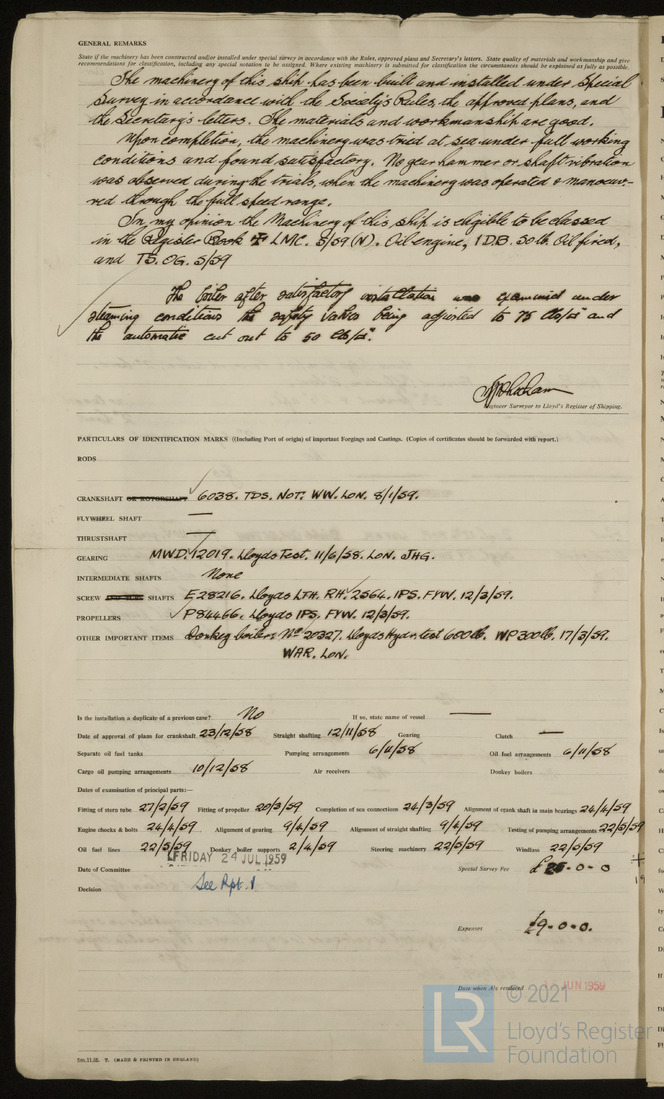 GENERAL REMARKS
State if the machinery has been constructed and/or installed under special survey in accordance with the Rules, approved plans and Secretary's letters. State quality of materials and workmanship and give
recommendations for classification, including any special notation to be assigned. Where existing machinery is submitted for classification the circumstances should be explained as fully as possible.
The machinery of this ship has been built and installed under Special
Survey in accordance with the Society's Rules, the approved plans, and
the Secretary's letters. The materials and workmanship are good.
Upon completion, the machinery was tried at sea under full working
conditions and found satisfactory. No gear hammer or shaft vibration
was observed during the trials, when the machinery was operated & manoeuv-
red through the full speed range.
In my opinion the Machinery of this ship is eligible to be classed
in the Register Book LMC. 5/59 (N). Oil engine, 1 D.B. 50 lb. Oil fired,
and TS. OG. 5/59
The boiler after satisfactory installation was examined under
steaming conditions the safety valves being adjusted to 75 lbs/□" and
the automatic cut out to 50 lbs/□".
Engineer Surveyor to Lloyd's Register of Shipping.
PARTICULARS OF IDENTIFICATION MARKS ((Including Port of origin) of important Forgings and Castings. (Copies of certificates should be forwarded with report.)
RODS
CRANKSHAFT OR ROTORSHAFT 6038. TDS. NOT: WW. LON. 8/1/59.
FLYWHEEL SHAFT —
THRUSTSHAFT —
GEARING MWD. 12019. Lloyds Test. 11/6/58. LON. JHG.
INTERMEDIATE SHAFTS None
SCREW SHAFTS E28216. Lloyds LTH. RH. 2564. IPS. FYW. 12/3/59.
PROPELLERS P84466. Lloyds IPS. FYW. 12/3/59.
OTHER IMPORTANT ITEMS Donkey boiler: No 20327. Lloyds Hydr. test 600 lb. WP 300 lb. 17/3/59.
WAR. LON.
Is the installation a duplicate of a previous case? No If so, state name of vessel —
Date of approval of plans for crankshaft 23/12/58 Straight shafting 12/11/58 Gearing Clutch —
Separate oil fuel tanks Pumping arrangements 6/11/58 Oil fuel arrangements 6/11/58
Cargo oil pumping arrangements 10/12/58 Air receivers Donkey boilers
Dates of examination of principal parts:—
Fitting of stern tube 27/2/59 Fitting of propeller 20/3/59 Completion of sea connections 24/3/59 Alignment of crank shaft in main bearings 24/4/59
Engine chocks & bolts 24/4/59 Alignment of gearing 9/4/59 Alignment of straight shafting 9/4/59 Testing of pumping arrangements 22/5/59
Oil fuel lines 22/5/59 Donkey boiler supports 2/4/59 Steering machinery 22/5/59 Windlass 22/5/59
FRIDAY 24 JUL 1959
Date of Committee Special Survey Fee £ 25-0-0
Decision See Rpt. 1
Expenses £9-0-0.
Date when A/c rendered JUN 1959
© 2021
LR
Lloyd's Register
Foundation
5m.11.55. T. (MADE & PRINTED IN ENGLAND)